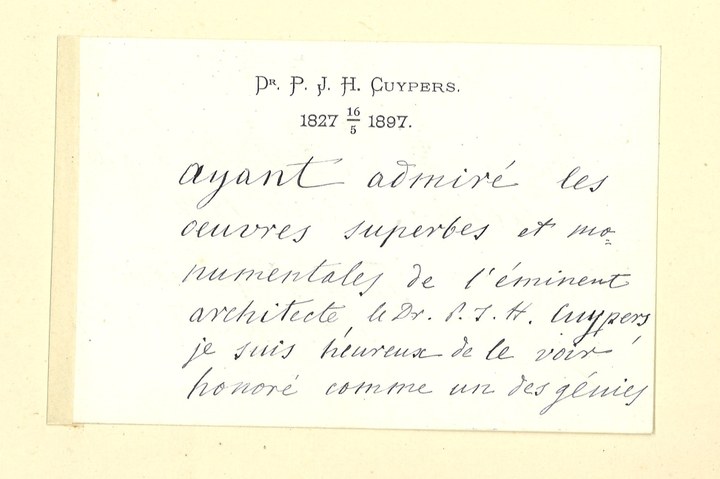 DR. P. J. H. CUYPERS.
1827 16/5 1897.
ayant admiré les
oeuvres superbes et mo=
numentales de l'éminent
architecte le Dr. P. J. H. Cuypers,
je suis heureux de le voir
honoré comme un des génies